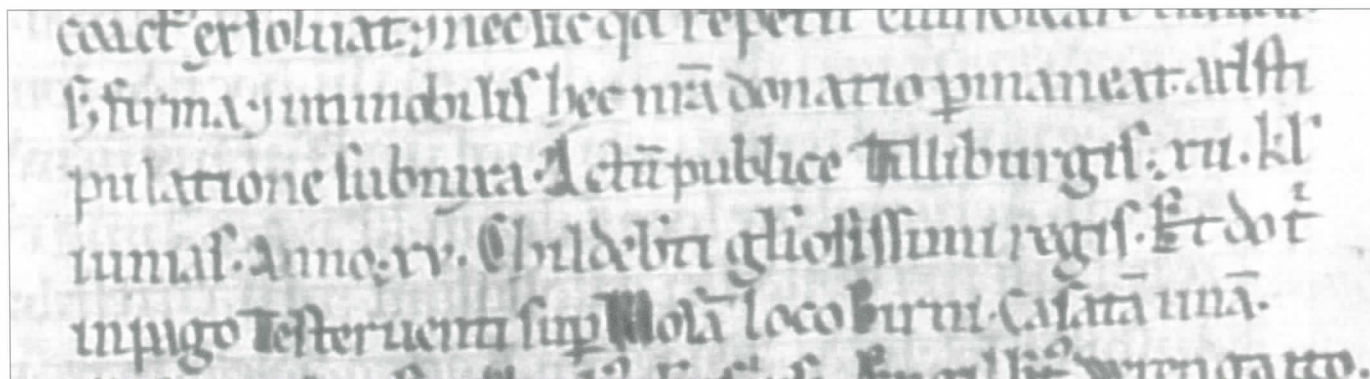 coact' exsoluat; ⁊ nec sic qd repetit
s; firma ⁊ immobilis hec nr̄a donatio ꝑmaneat. sti
pulatione subnixa. Actū publice Tilliburgis. kl'
iunias. Anno. xv. Childebti gliosissimi regis. Et dot
in pago Testeruenti suꝑ Mosā loco Birni. Casatā unā.